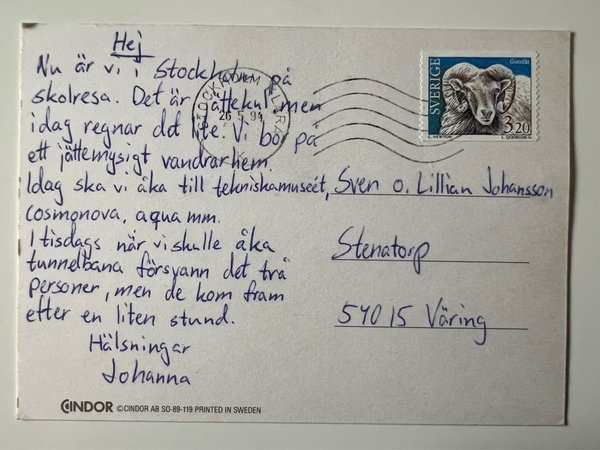 Hej
Nu är vi i Stockholm på
skolresa. Det är jättekul men
idag regnar det lite. Vi bor på
ett jättemysigt vandrarhem.
Idag ska vi åka till tekniskamuseét,
cosmonova, aqua mm.
I tisdags när vi skulle åka
tunnelbana försvann det två
personer, men de kom fram
efter en liten stund.
Hälsningar
Johanna
CINDOR © CINDOR AB SO-89-119 PRINTED IN SWEDEN
STOCKHOLM
26.5.94
SVERIGE
Gutefår
3.20
Sven o. Lillian Johansson
Stenatorp
540 15 Väring